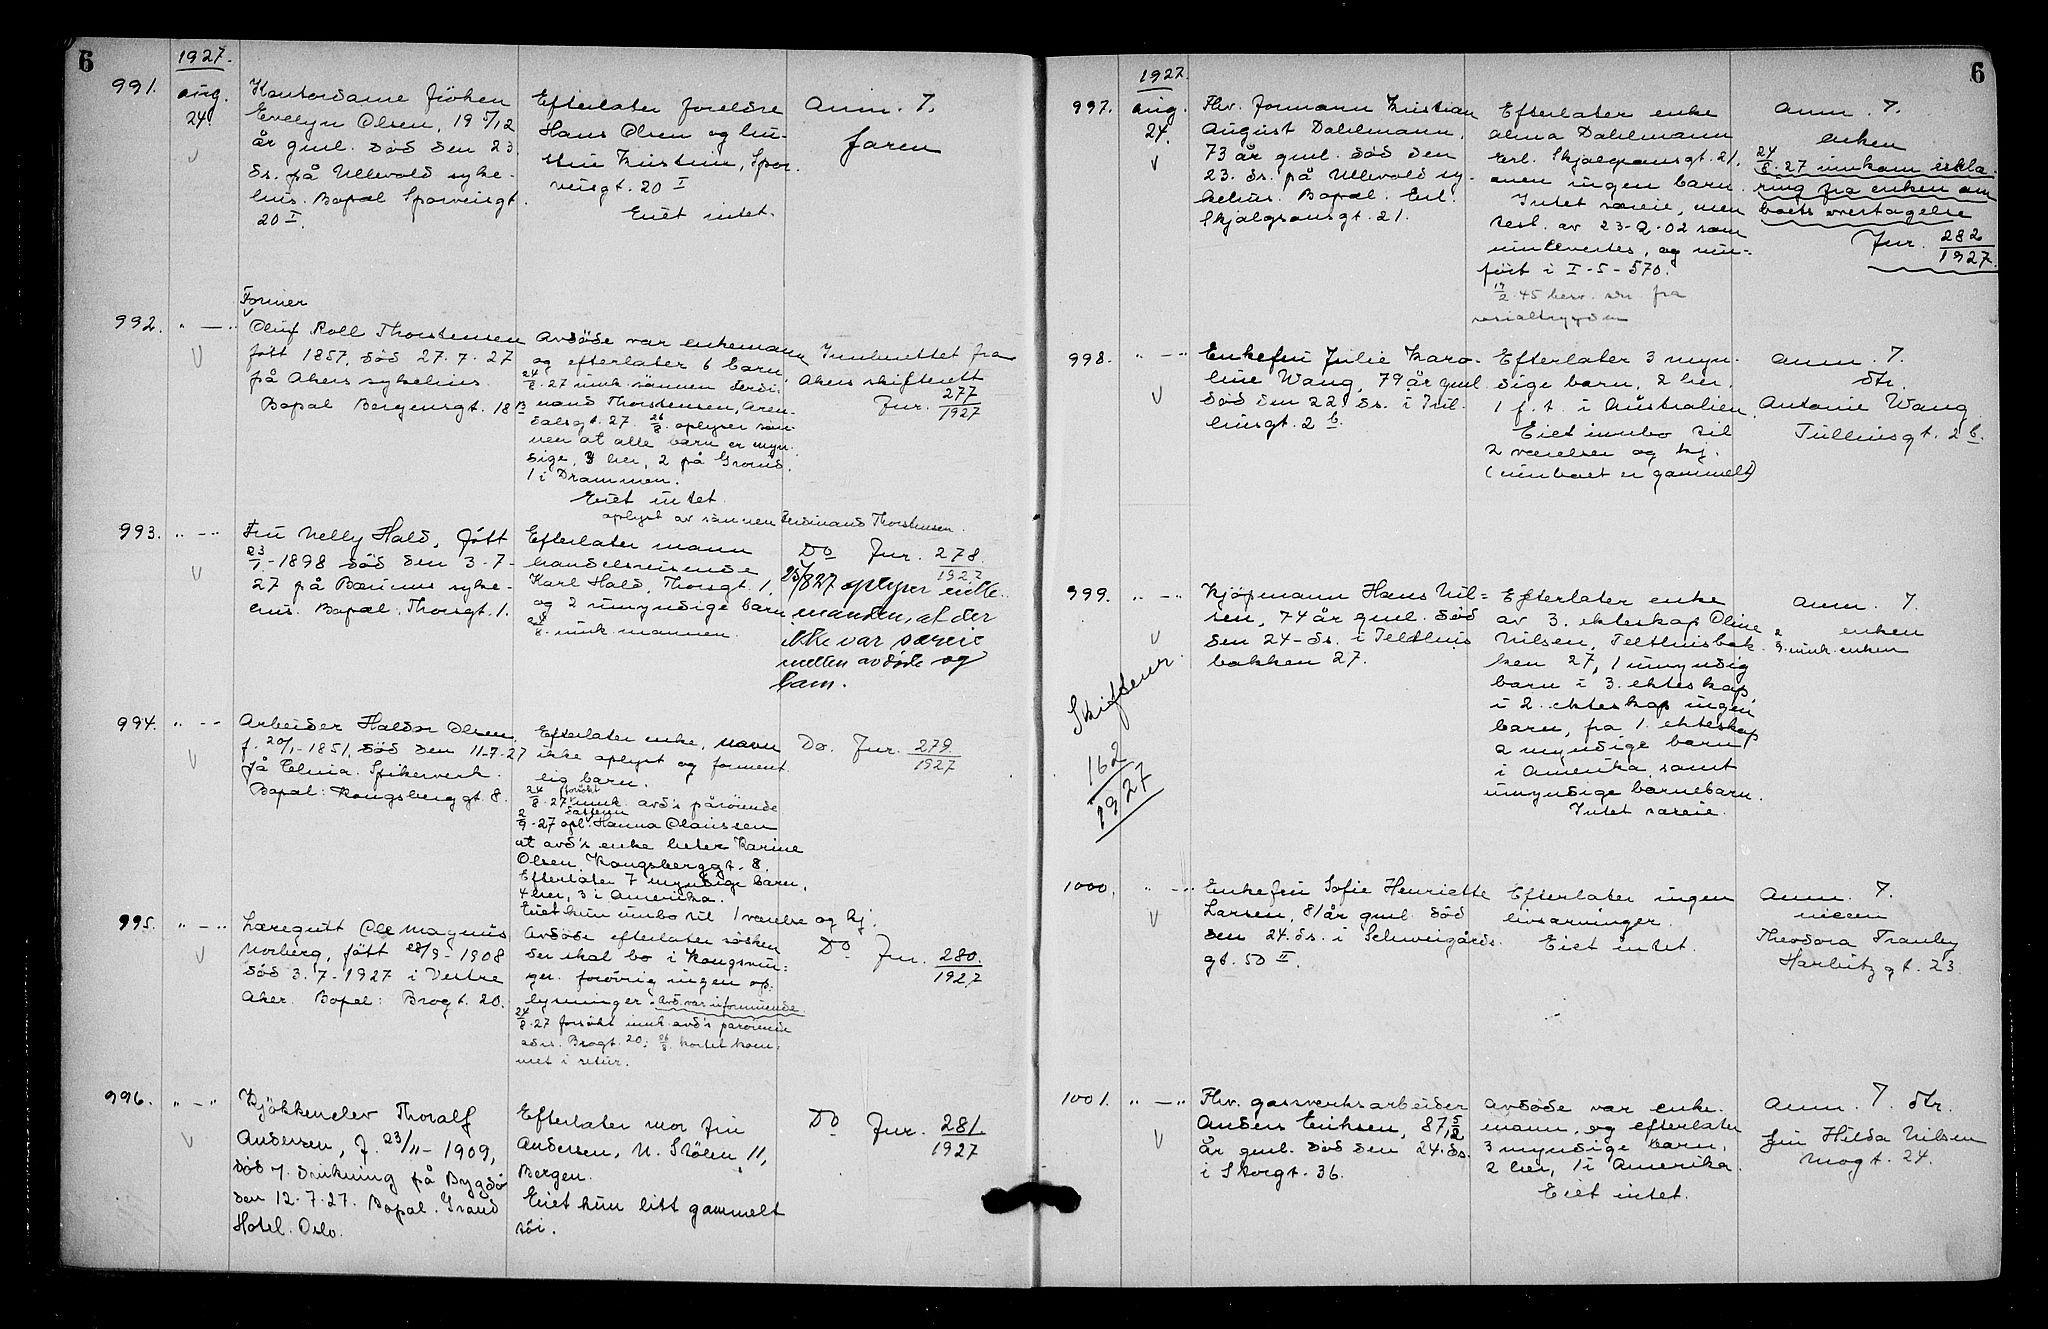 6
1927.
991.
aug.
24.
Kontordame frøken
Evelyn Olsen, 19 5/12
år gml. død den 23
ds. på Ullevold syke-
hus. Bopæl Sporveisgt.
20 I.
Efterlater foreldre
Hans Olsen og hu-
stru Kristin, Spor-
veisgt. 20 I
Eiet intet.
Anm. 7.
faren
992.
" — "
Former
Oluf Roll Thorstensen
født 1857, død 27.7.27
på Akers sykehus.
Bopæl Bergensgt. 18 B
Avdøde var enkemann
og efterlater 6 barn.
24/8.27 innk. sønnen Ferdi-
nand Thorstensen, Aren-
dalsgt. 27. 26/8. oplyser søn-
nen at alle barn er myn-
dige, 3 her, 2 på Grorud,
1 i Drammen.
Eiet intet.
oplyst av sønnen Ferdinand Thorstensen.
Innberettet fra
Akers skifterett
Jnr. 277/1927
993.
" — "
Fru Nelly Hald, født
23/1-1898 død den 3-7-
27 på Bærums syke-
hus. Bopæl, Thorsgt. 1.
Efterlater mann
handelsreisende
Karl Hald, Thorsgt. 1,
og 2 umyndige barn
24/8. innk. mannen.
Do Jnr. 278./1927
25/8 27 oplyser enke-
manden, at der
ikke var særeie
mellem avdøde og
ham.
994.
" — "
Arbeider Haldor Olsen,
f. 20/1-1851, død den 11-7-27
på Christiania Spikerverk.
Bopæl: Kongsberggt. 8.
Efterlater enke, navn
ikke oplyst og forment-
lig barn.
24/8.27 forsøkt innk. avd's pårørende
2/9-27 opl. datteren Hanna Olaussen
at avd's enke heter Karine
Olsen, Kongsberggt. 8.
Efterlater 7 myndige barn,
4 her, 3 i Amerika.
Eiet kun innbo til 1 værelse og kj.
Do. Jnr. 279./1927
995.
" — "
Læregutt Ole Magnus
Norberg, født 28/9-1908
død 3.7-1927 i Vestre
Aker. Bopæl: Brogt. 20.
Avdøde efterlater søsken
der skal bo i Kongsvin-
ger. forøvrig ingen op-
lysninger. Avd. var uformuende.
24/8.27 forsøkt innk. avd's pårørende
adr. Brogt. 20; 26/8. kortet kom-
met i retur.
Do Jnr. 280./1927
996.
" — "
Kjøkkenelev Thoralf
Andersen, f. 23/11-1909,
død v. drukning på Bygdø
den 12.7.27. Bopæl. Grand
Hotel. Oslo.
Efterlater mor fru
Andersen, N. Stølen 11,
Bergen.
Eiet kun litt gammelt
tøi.
Do Jnr. 281/1927
6
1927.
997.
aug.
24.
Fhv. formann Kristian
August Dahlmann,
73 år gml. død den
23. ds. på Ullevold sy-
kehus. Bopæl. Erl.
Skjalgsønsgt. 21.
Efterlater enke
Alma Dahlmann
Erl. Skjalgsønsgt. 21,
men ingen barn.
Intet særeie, men
test. av 23-2-02 som
innleveres, og inn-
ført i I-5-570.
19/2.45 besv. skr. fra
sosialtrygden
Anm. 7.
enken
24/8-27 innkom erklæ-
ring fra enken om
boets overtagelse
Jnr. 282/1927.
998.
" — "
Enkefru Julie Karo-
line Wang, 79 år gml.
død den 22. ds. i Tul-
linsgt. 2 b.
Efterlater 3 myn-
dige barn, 2 her,
1 f.t. i Australien.
Eiet innbo til
2 værelser og kj.
(innboet er gammelt)
Anm. 7.
dtr.
Antonie Wang
Tullinsgt. 2 b.
999.
" — "
Kjøpmann Hans Nil-
sen, 74 år gml. død
den 24-ds. i Telthus-
bakken 27.
Skiftejnr.
162/1927
Efterlater enke
av 3. ekteskap Oline
Nilsen, Telthusbak-
ken 27, 1 umyndig
barn i 3. ekteskap,
i 2. ekteskap ingen
barn, fra 1. ekteskap
2 myndige barn
i Amerika, samt
umyndige barnebarn.
Intet særeie.
Anm. 7.
enken
2/9. innk. enken
1000.
" — "
Enkefru Sofie Henriette
Larsen, 81 år gml. død
den 24. ds. i Schweigårds-
gt. 50 II.
Efterlater ingen
livsarvinger.
Eiet intet.
Anm. 7.
niesen
Theodora Tranby
Harbitzgt. 23.
1001.
" — "
Fhv. gassverksarbeider
Anders Eriksen, 87 5/12
år gml. død den 24. ds.
i Skovgt. 36.
Avdøde var enke-
mann, og efterlater
3 myndige barn,
2 her, 1 i Amerika.
Eiet intet.
Anm. 7. dtr.
fru Hilda Nilsen
Mogt. 24.